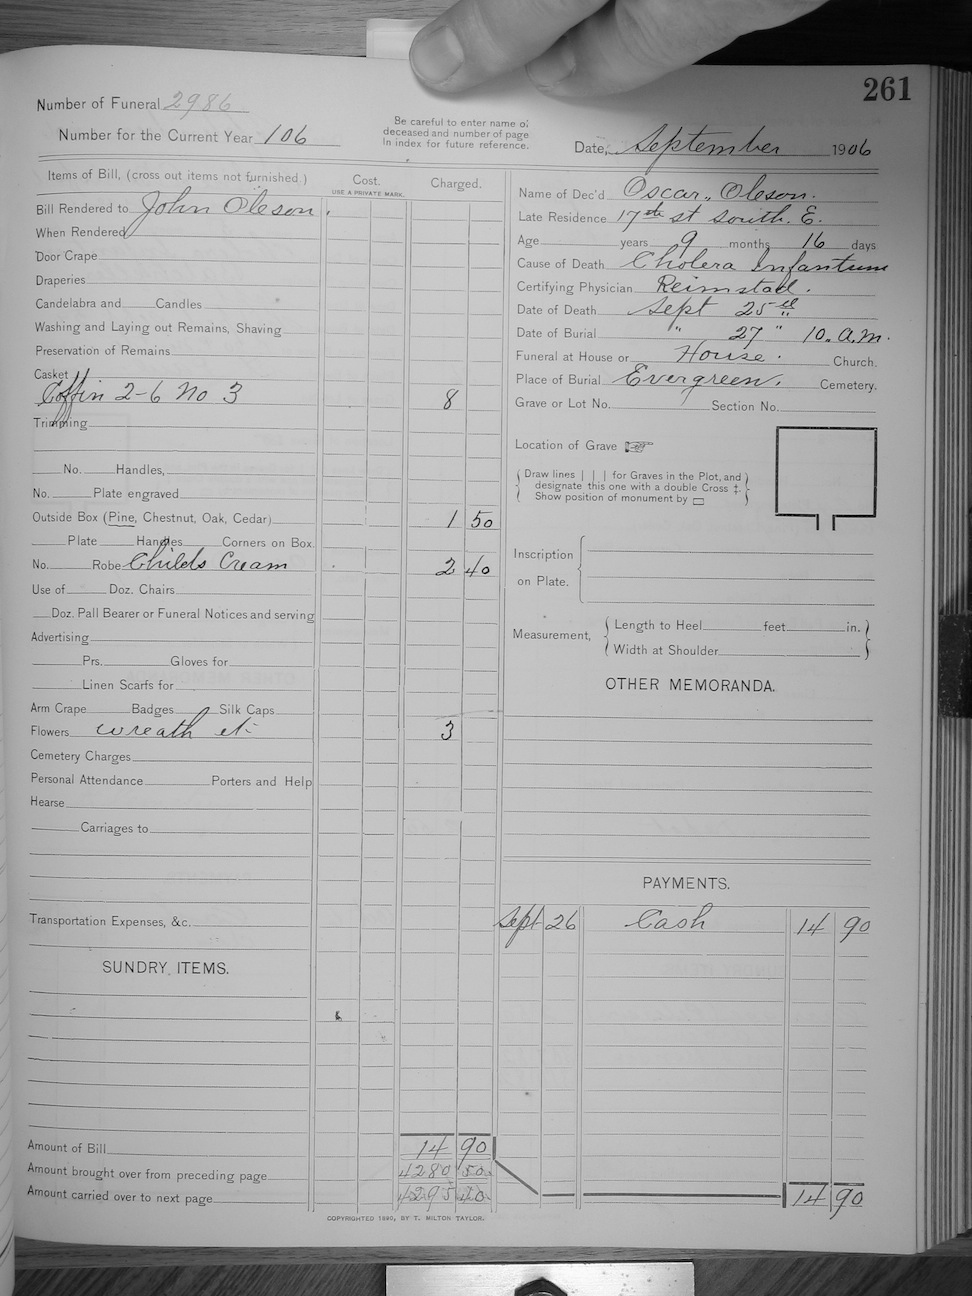 261
Number of Funeral 2986
Number for the Current Year 106
Be careful to enter name of
deceased and number of page
in index for future reference.
Date, September 1906
Items of Bill, (cross out items not furnished.)
Cost.
USE A PRIVATE MARK.
Charged.
Bill Rendered to John Oleson.
When Rendered
Door Crape
Draperies
Candelabra and Candles
Washing and Laying out Remains, Shaving
Preservation of Remains
Casket
Coffin 2-6 No 3 8
Trimming
No. Handles,
No. Plate engraved
Outside Box (Pine, Chestnut, Oak, Cedar) 1 50
Plate Handles Corners on Box.
No. Robe Childs Cream 2 40
Use of Doz. Chairs
Doz. Pall Bearer or Funeral Notices and serving
Advertising
Prs. Gloves for
Linen Scarfs for
Arm Crape Badges Silk Caps
Flowers wreath etc 3
Cemetery Charges
Personal Attendance Porters and Help
Hearse
Carriages to
Transportation Expenses, &c.
SUNDRY ITEMS.
Amount of Bill 14 90
Amount brought over from preceding page 4280 50
Amount carried over to next page 4295 40
COPYRIGHTED 1890, BY T. MILTON TAYLOR.
Name of Dec'd Oscar, Oleson.
Late Residence 17th st South. E.
Age years 9 months 16 days
Cause of Death Cholera Infantum
Certifying Physician Reimstad.
Date of Death Sept 25
Date of Burial " 27 " 10. A.M.
Funeral at House or House. Church.
Place of Burial Evergreen. Cemetery.
Grave or Lot No. Section No.
Location of Grave
Draw lines | | | for Graves in the Plot, and
designate this one with a double Cross ‡.
Show position of monument by ▭
Inscription
on Plate.
Measurement,
Length to Heel feet in.
Width at Shoulder
OTHER MEMORANDA.
PAYMENTS.
Sept 26 Cash 14 90
14 90